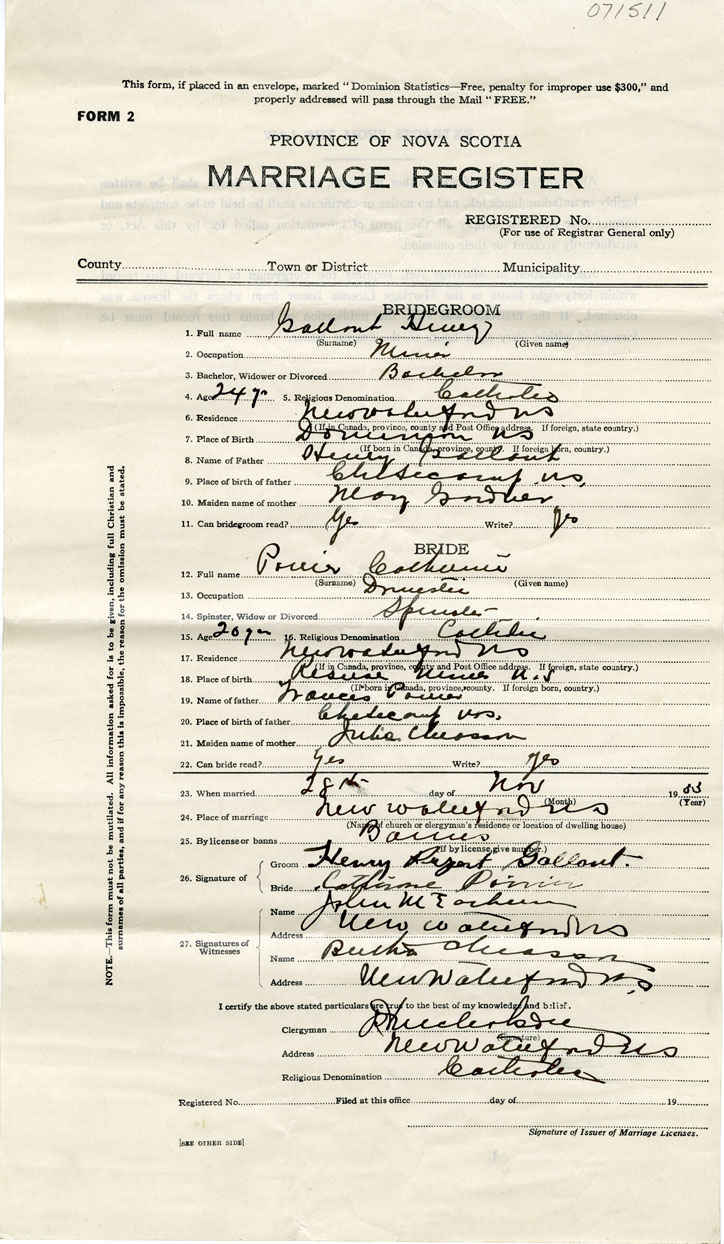 071511
This form, if placed in an envelope, marked "Dominion Statistics—Free, penalty for improper use $300," and
properly addressed will pass through the Mail "FREE."
FORM 2
PROVINCE OF NOVA SCOTIA
MARRIAGE REGISTER
REGISTERED No.
(For use of Registrar General only)
County Town or District Municipality
BRIDEGROOM
1. Full name Gallant Henry
(Surname) (Given name)
2. Occupation Miner
3. Bachelor, Widower or Divorced Bachelor
4. Age 24 yr 5. Religious Denomination Catholic
6. Residence New Waterford NS
(If in Canada, province, county and Post Office address. If foreign, state country.)
7. Place of Birth Dominion NS
(If born in Canada, province, county. If foreign born, country.)
8. Name of Father Henry Gallant
9. Place of birth of father Cheticamp N.S.
10. Maiden name of mother Mary
11. Can bridegroom read? Yes Write? Yes
BRIDE
12. Full name Poirier Catherine
(Surname) (Given name)
13. Occupation Domestic
14. Spinster, Widow or Divorced Spinster
15. Age 20 yr 16. Religious Denomination Catholic
17. Residence New Waterford NS
(If in Canada, province, county and Post Office address. If foreign, state country.)
18. Place of birth Reserve Mines N.S
(If born in Canada, province, county. If foreign born, country.)
19. Name of father Frances Poirier
20. Place of birth of father Cheticamp N.S.
21. Maiden name of mother Julia Chiasson
22. Can bride read? Yes Write? Yes
23. When married 28th day of Nov 19
(Month) (Year)
24. Place of marriage New Waterford NS
(Name of church or clergyman's residence or location of dwelling house)
25. By license or banns Banns
(if by license, give number.)
26. Signature of
Groom Henry Gallant.
Bride Catherine Poirier
27. Signatures of
Witnesses
Name John
Address New Waterford NS
Name Bertha Chiasson
Address New Waterford N.S
I certify the above stated particulars are true to the best of my knowledge and belief.
Clergyman
(Signature)
Address New Waterford NS
Religious Denomination Catholic
Registered No. Filed at this office day of 19
Signature of Issuer of Marriage Licenses.
[SEE OTHER SIDE]
NOTE.—This form must not be mutilated. All information asked for is to be given, including full Christian and
surnames of all parties, and if for any reason this is impossible, the reason for the omission must be stated.